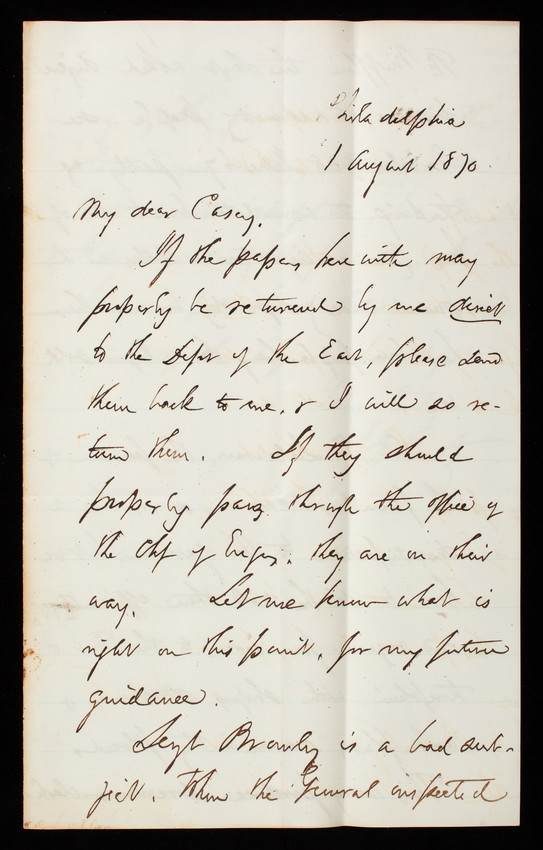 Philadelphia
1 August 1870.
My dear Casey,
If the papers herewith may
properly be returned by me direct
to the Dept of the East, please send
them back to me, & I will so re-
turn them. If they should
properly pass through the office of
the Chf of Engrs, they are on their
way. Let me know what is
right on this point, for my future
guidance.
Sergt is a bad sub-
ject. When the General inspected